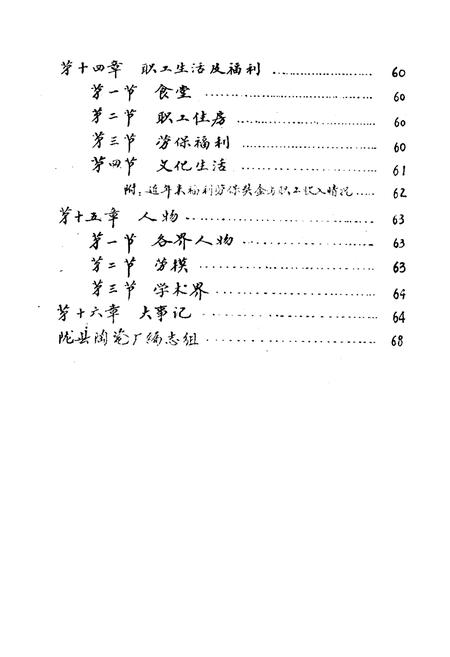 第十四章 职工生活及福利 …………… 60
第一节 食堂 …………… 60
第二节 职工住房 …………… 60
第三节 劳保福利 …………… 60
第四节 文化生活 …………… 61
附：近年来福利劳保奖金与职工收入情况 …… 62
第十五章 人物 …………… 63
第一节 各界人物 …………… 63
第二节 劳模 …………… 63
第三节 学术界 …………… 64
第十六章 大事记 …………… 64
陇县陶瓷厂编志组 …………… 68